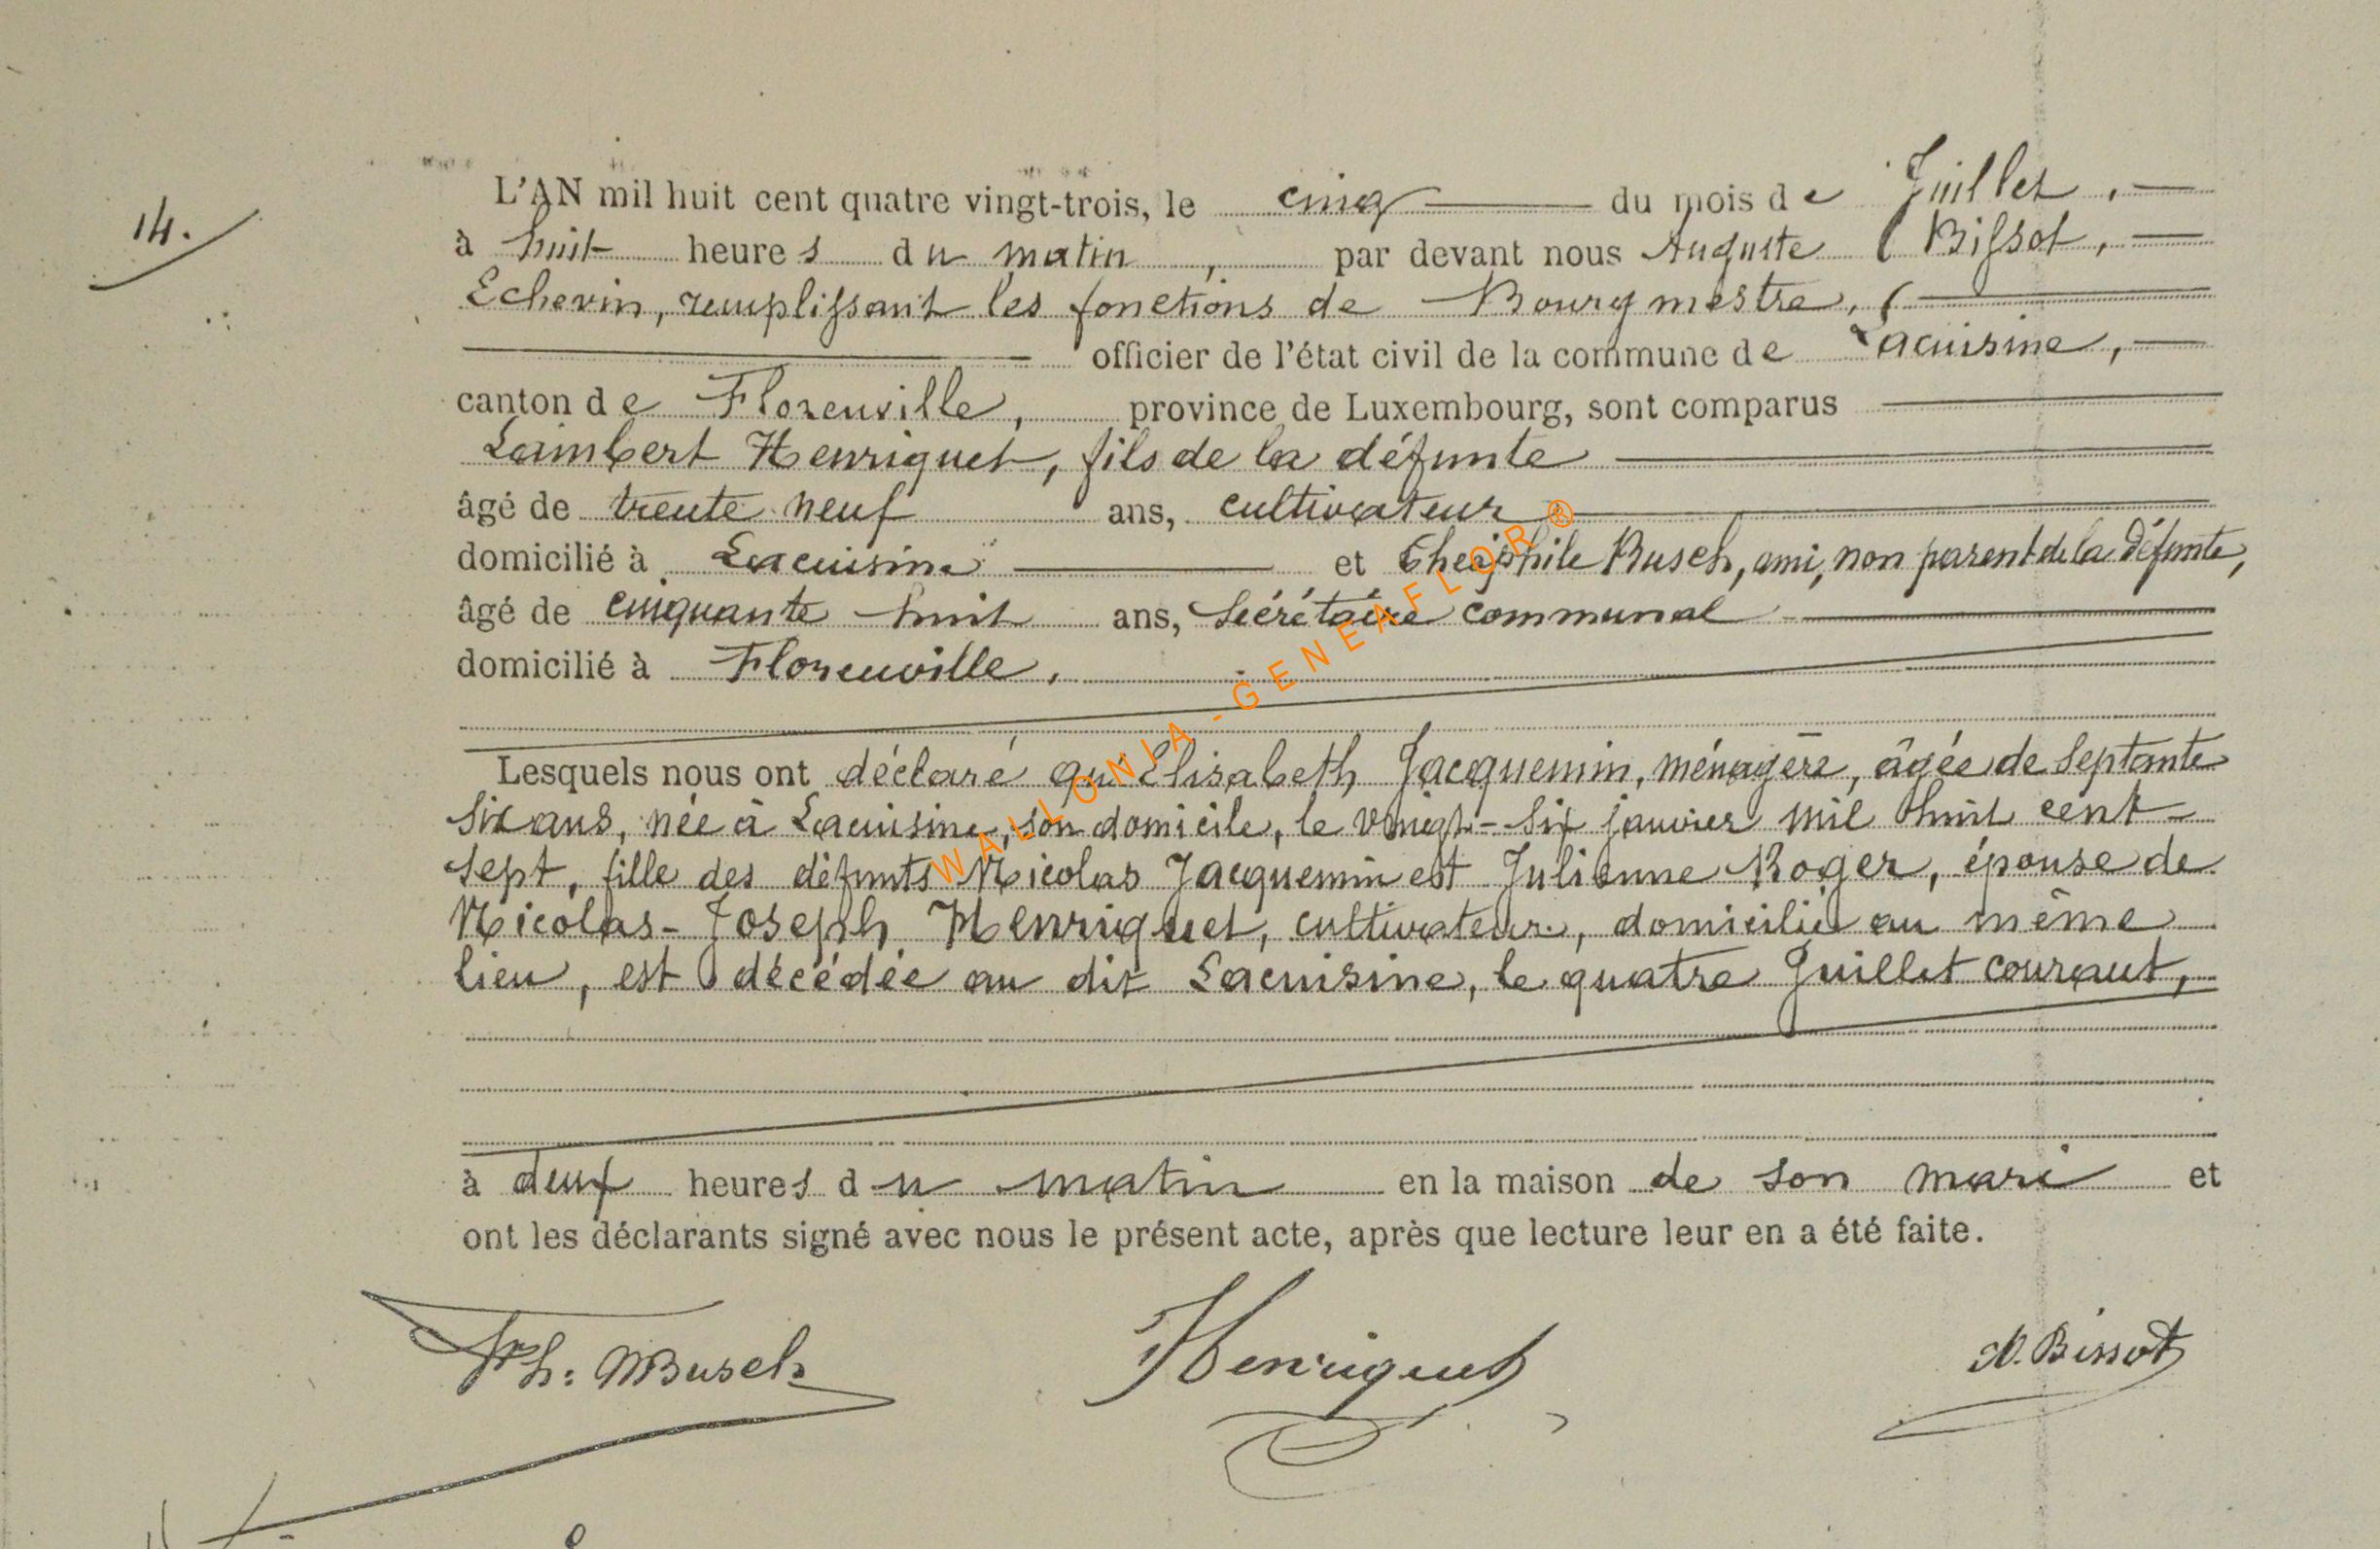 14.
L'AN mil huit cent quatre vingt-trois, le cinq du mois de Juillet,
à huit heures du matin, par devant nous Auguste Bissot,
Echevin, remplissant les fonctions de Bourgmestre,
officier de l'état civil de la commune de Lacuisine,
canton de Florenville, province de Luxembourg, sont comparus
Lambert Henriquet, fils de la défunte
âgé de trente neuf ans, cultivateur
domicilié à Lacuisine et Théophile Busch, ami, non parent de la défunte,
âgé de cinquante huit ans, Secrétaire communal
domicilié à Florenville.
Lesquels nous ont déclaré qu'Elisabeth Jacquemin, ménagère, âgée de Septante
Six ans, née à Lacuisine, son domicile, le vingt-six janvier mil huit cent
sept, fille des défunts Nicolas Jacquemin et Julienne Roger, épouse de
Nicolas-Joseph Henriquet, cultivateur, domicilié au même
lieu, est décédée au dit Lacuisine, le quatre Juillet courant,
à deux heures du matin en la maison de son mari et
ont les déclarants signé avec nous le présent acte, après que lecture leur en a été faite.
Th: Busch Henriquet A. Bissot
WALLONIA-GENEAFLOR ®